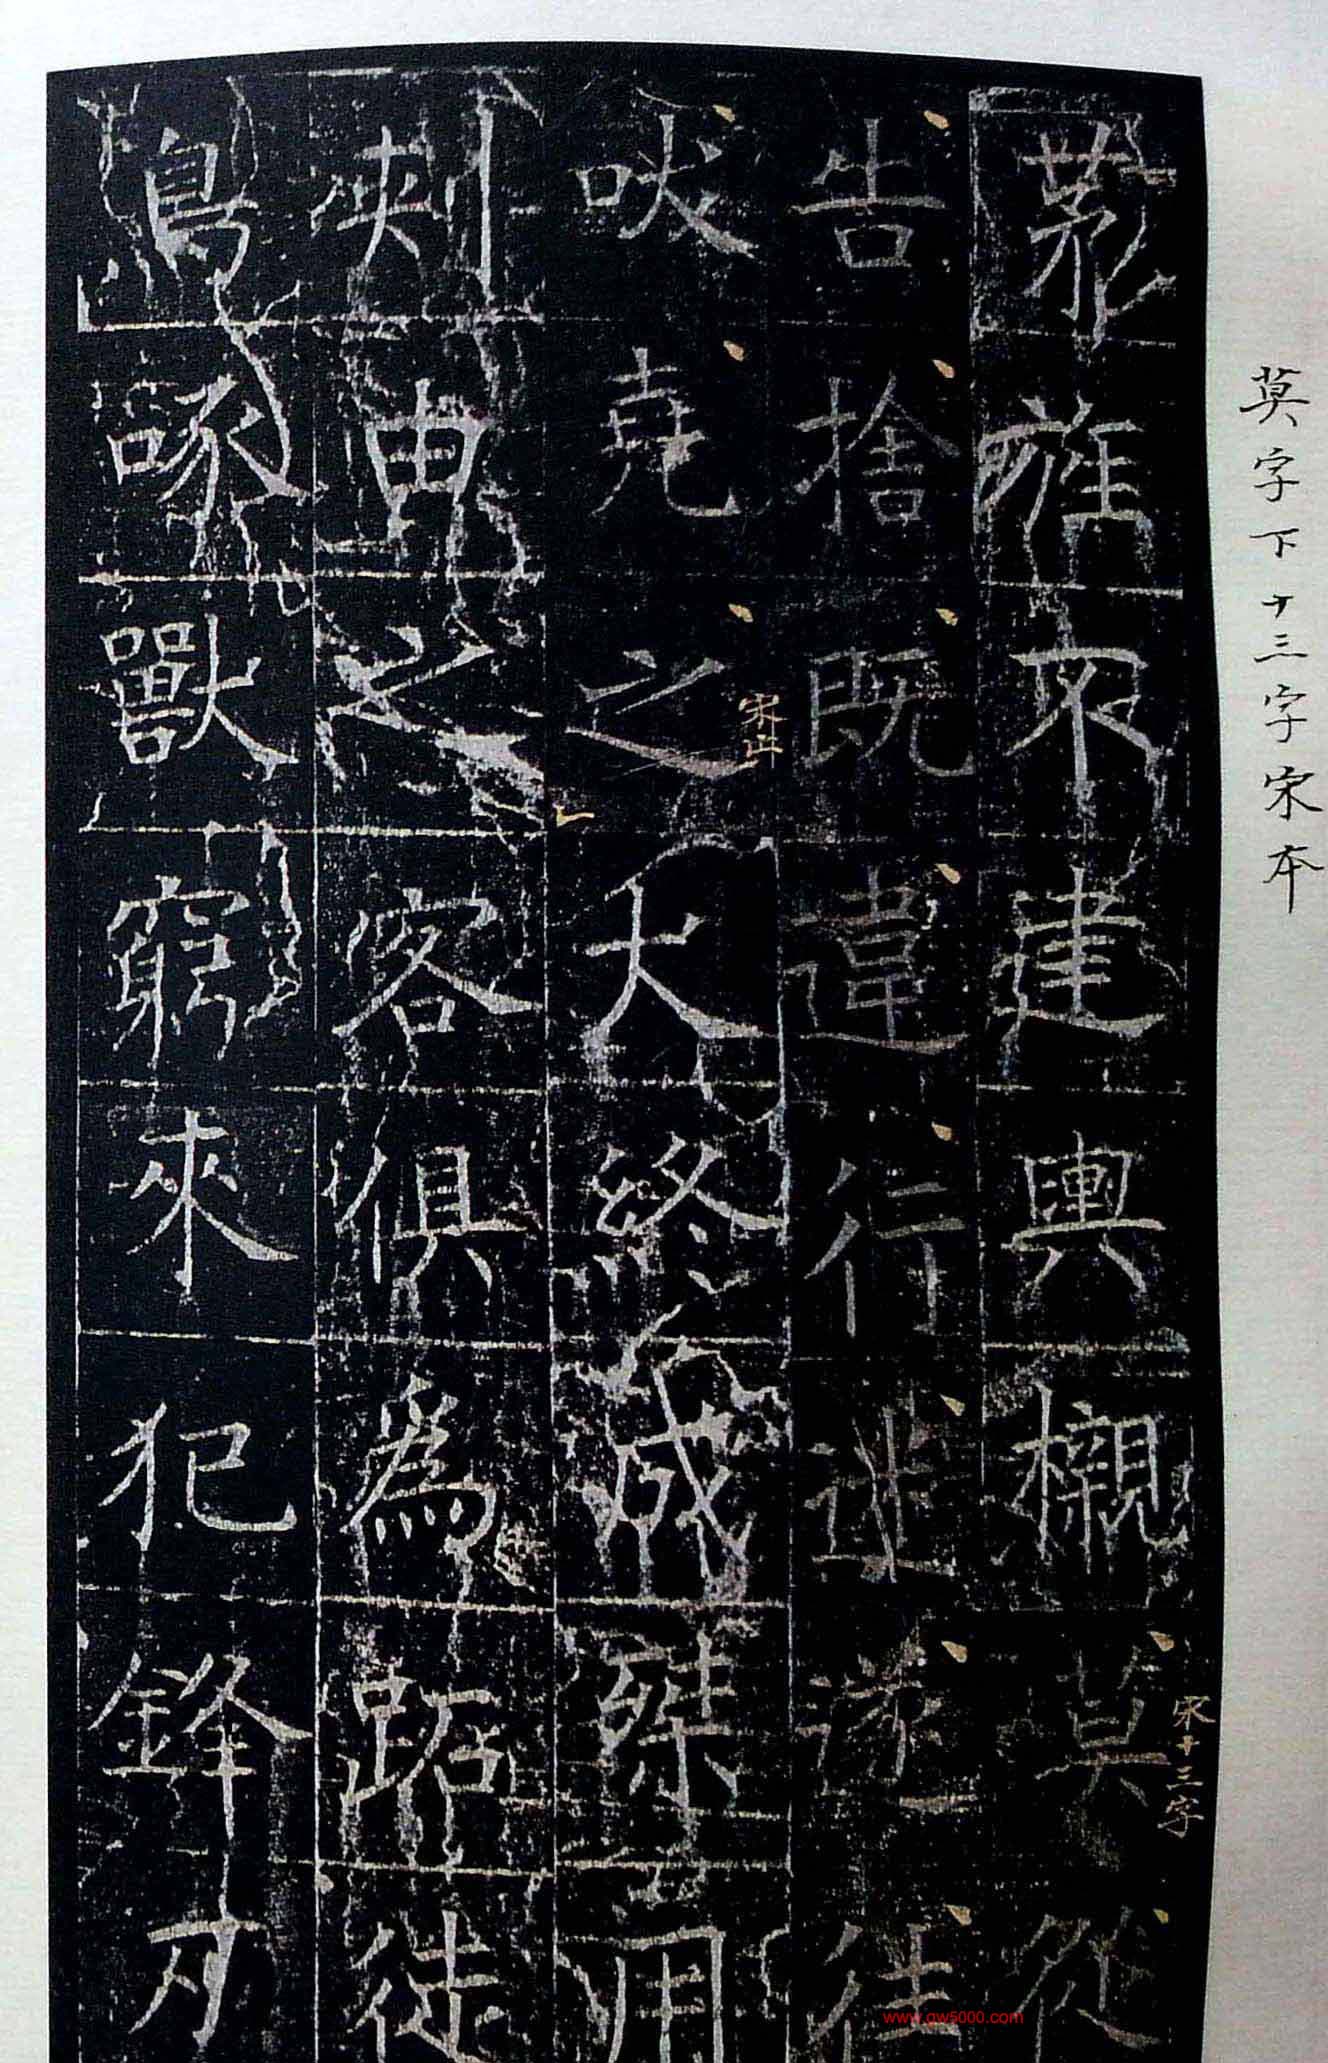 莫字下十三字宋本
茅旌不建輿櫬莫從
宋十三字
告捨既違行迷遂往
吠堯之犬終成桀用
宋止
刺由之客俱為跖徒
鳥啄獸窮來犯鋒刃
www.gw5000.com